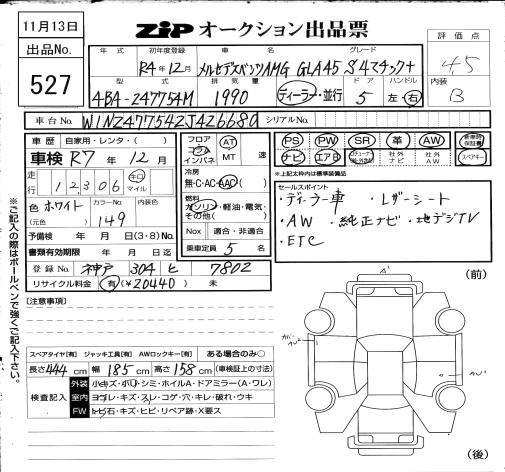 11月13日
出品No.
527
ZIP オークション出品票
評価点
4.5
内装
B
年式 初年度登録 車名 グレード
R4年12月 メルセデスベンツAMG GLA45 S 4マチック+
型式 排気量 ドア ハンドル
4BA-247754M 1990 ディーラー・並行 5 左・右
車台No. W1N2477542J426680 シリアルNo.
車歴 自家用・レンタ・( )
車検 R7年12月
走行 12,306 キロ マイル
色 ホワイト (元色) カラーNo. 149 内装色
予備検 年 月 日(3・8)No.
書類有効期限 年 月 日迄
登録No. 神戸 304 ヒ 7802
リサイクル料金 有(¥20440) 未
フロア コラム インパネ AT MT 速
冷房 無・C・AC・AAC
燃料 ガソリン・軽油・電気・その他( )
Nox 適合・非適合
乗車定員 5 名
PS PW SR 革 AW 新車時保証書
ナビ エアB 社外ナビ 社外AW スペアキー
※上記太枠内は標準装備品
セールスポイント
・ディーラー車 ・レザーシート
・AW ・純正ナビ ・地デジTV
・ETC
※ご記入の際はボールペンで強くご記入下さい。
[注意事項]
スペアタイヤ[有] ジャッキ工具[有] AWロックキー[有] ある場合のみ○
長さ444cm 幅185cm 高さ158cm (車検証上の寸法)
検査記入
外装 小キズ・小凹・シミ・ホイルA・ドアミラー(A・ワレ)
室内 ヨゴレ・キズ・スレ・コゲ・穴・キレ・破れ・ウキ
FW トビ石・キズ・ヒビ・リペア跡・X要ス
(前)
A1
AW2
AW1
(後)